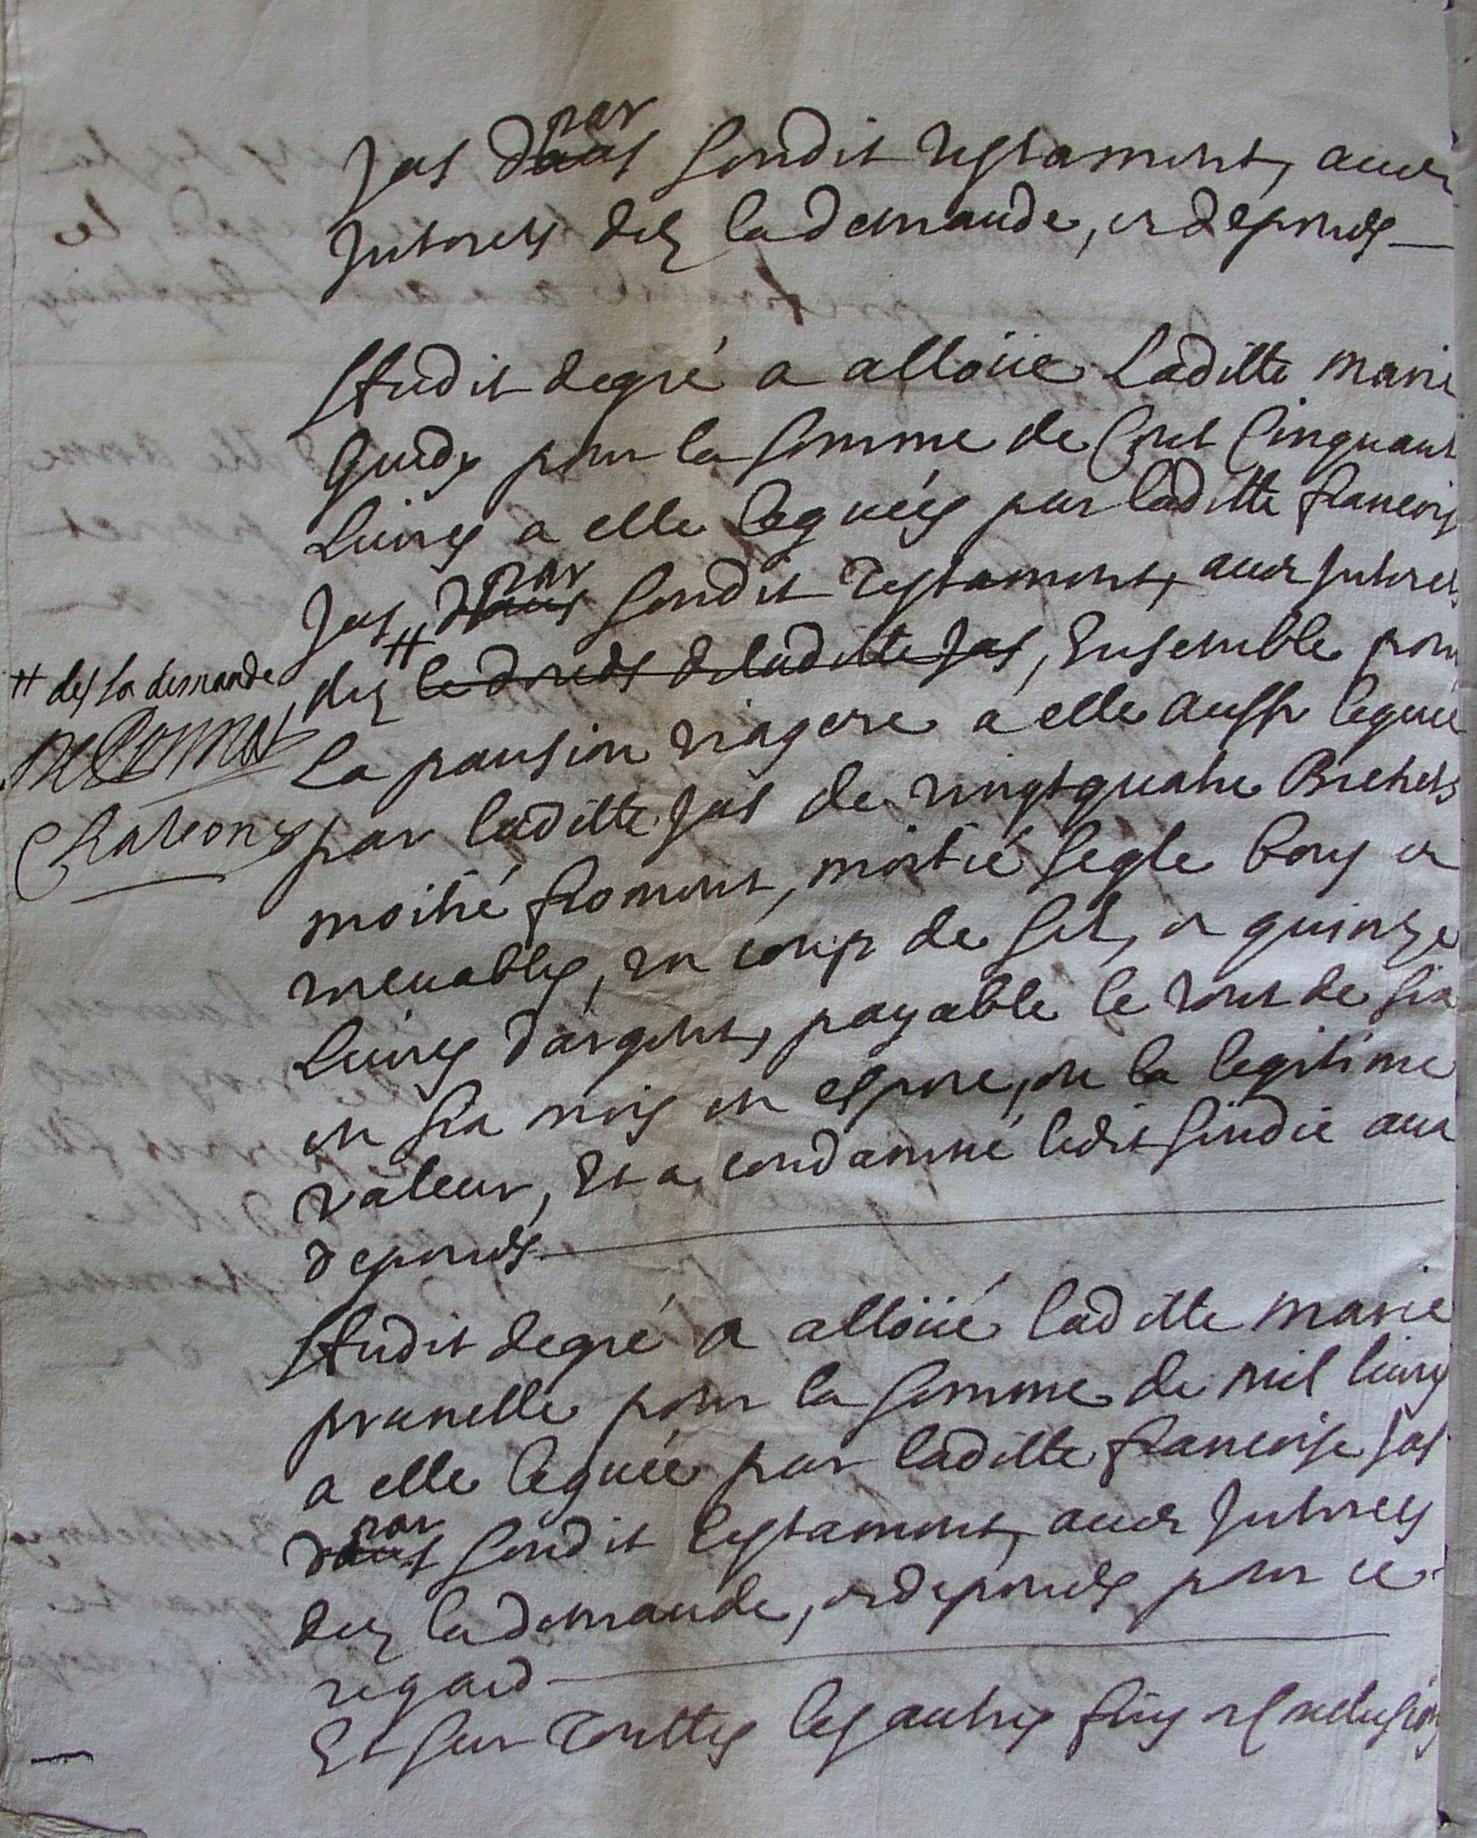 par
Jas dans sondit testament, avec
Interests dez la demande, et depends
Audit degré a alloüé Laditte marie
Guedy pour la somme de Cent Cinquante
Livres a elle leguées par laditte francoise
par
Jas, dans sondit testament, avec Interets
# dez le deceds de laditte Jas, Ensemble pour
# des la demande
La pansion viagere a elle aussy leguée
Chaleon
par laditte Jas de vingt quatre Bichets
moitié froment, moitié segle bons et
mevables, un coup de sel, et quinze
Livres d'argent, payable le tout de six
en six mois en espece, ou la legitime
valeur, Et a condamné ledit sindic aux
depends
Audit degré a alloüé laditte marie
prunelle pour la somme de mil livres
a elle leguée par laditte francoise Jas
par
dans sondit testament, avec Interets
dez la demande, et depends pour ce
regard
Et sur touttes les autres fins et conclusions